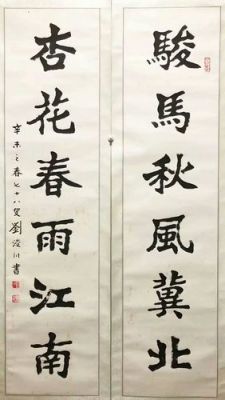 駿馬秋風冀北
杏花春雨江南
辛未之春七十八叟劉凌川書